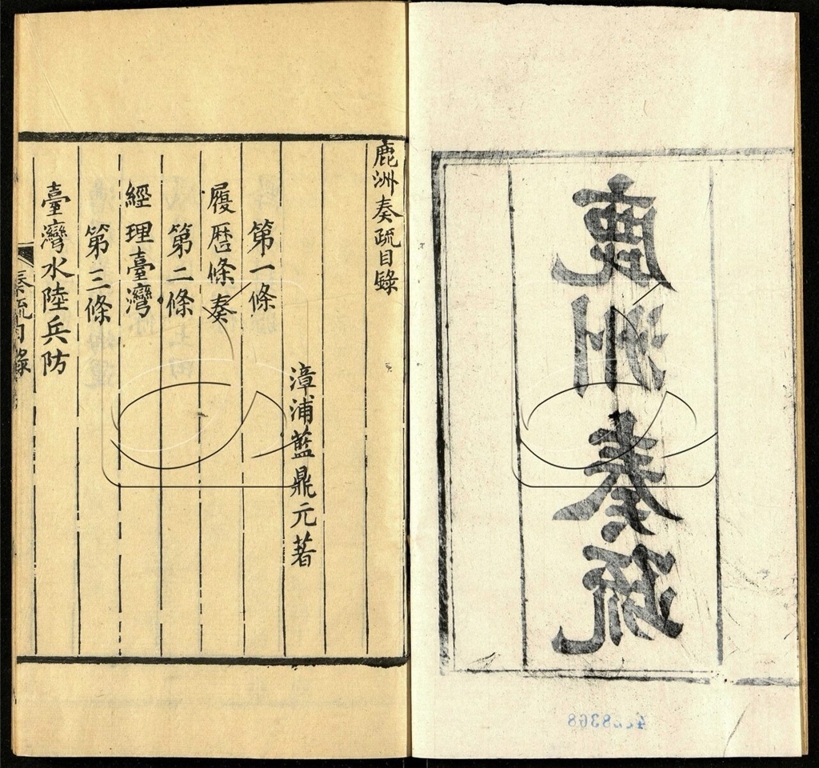 鹿洲奏疏
鹿洲奏疏目錄
漳浦藍鼎元著
第一條
履歷條奏
第二條
經理臺灣
第三條
臺灣水陸兵防
奏疏目錄